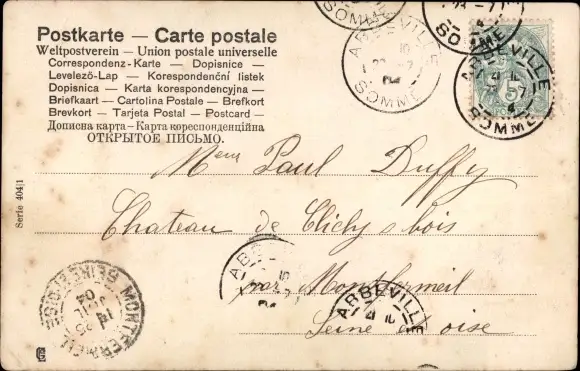 Postkarte — Carte postale
Weltpostverein — Union postale universelle
Correspondenz-Karte — Dopisnice —
Levelező-Lap — Korespondenční listek
Dopisnica — Karta korespondencyjna —
Briefkaart — Cartolina Postale — Brefkort
Brevkort — Tarjeta Postal — Postcard —
Дописна карта — Карта кореспонденційна
ОТКРЫТОЕ ПИСЬМО.
SOMME
ABBEVILLE
SOMME
SOMME
ABBEVILLE
SOMME
5
Mme Paul Duffy
Chateau de Clichy s/bois
par Montfermeil
Seine et oise
Serie 404|1
ABBEVILLE
SEINE ET OISE